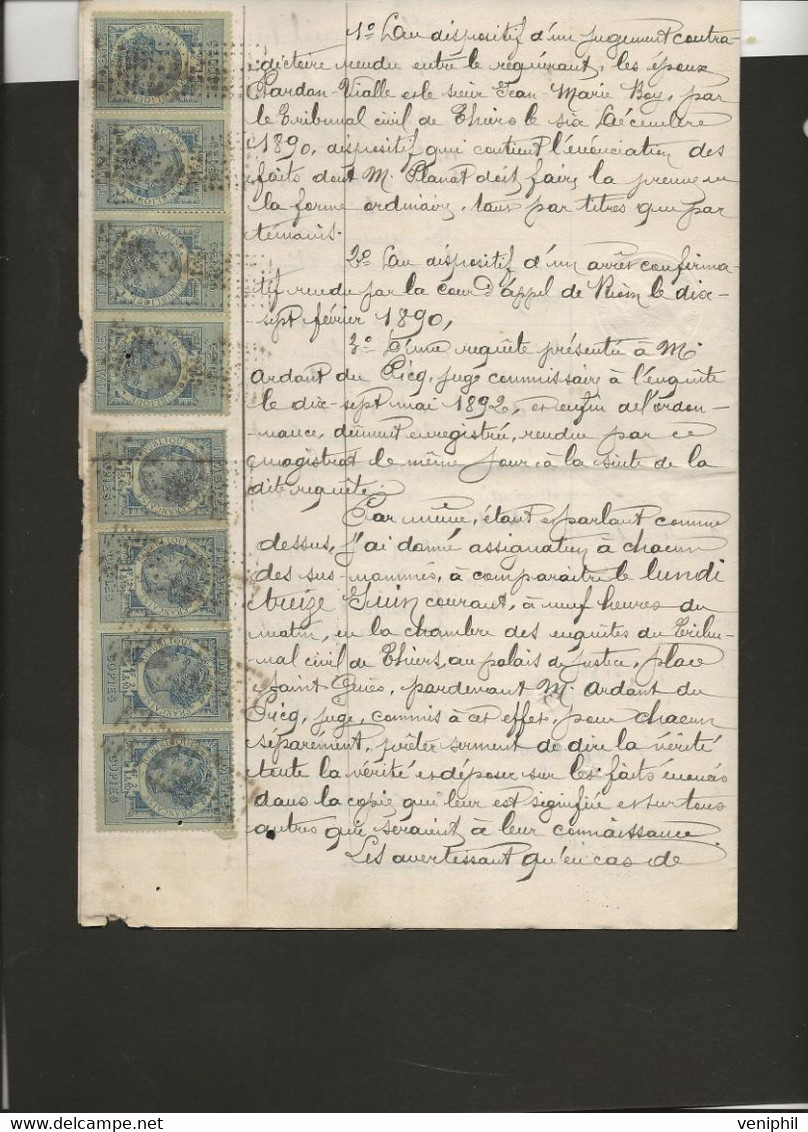 1º Du dispositif d'un jugement contra-
dictoire rendu entre le requérant, les époux
Chardon-Vialle et le sieur Jean Marie Boy, par
le Tribunal civil de Thiers le six Décembre
1890, dispositif qui contient l'énonciation des
faits dont M. Planat doit faire la preuve en
la forme ordinaire, tant par titres que par
témoins.
2º Du dispositif d'un arrêt confirma-
tif rendu par la cour d'appel de Riom le dix-
sept février 1890,
3º D'une requête présentée à M.
Ardant du Picq, juge commissaire à l'enquête
le dix-sept mai 1892, et enfin de l'ordon-
nance, dûment enregistrée, rendue par ce
magistrat le même jour, à la suite de la
dite requête;
Par même, étant et parlant comme
dessus, j'ai donné assignation à chacun
des sus-nommés, à comparaître le lundi
treize Juin courant, à neuf heures du
matin, en la chambre des enquêtes du Tribu-
nal civil de Thiers, au palais de justice, place
Saint Genès, pardevant M. Ardant du
Picq, juge, commis à cet effet, pour chacun
séparement, prêter serment de dire la vérité
toute la vérité et déposer sur les faits énoncés
dans la copie qui leur est signifiée et sur tous
autres qui seraient à leur connaissance.
Les avertissant qu'en cas de
REPUBLIQUE
FRANÇAISE
TIMBRE
COPIES
www.veniphil